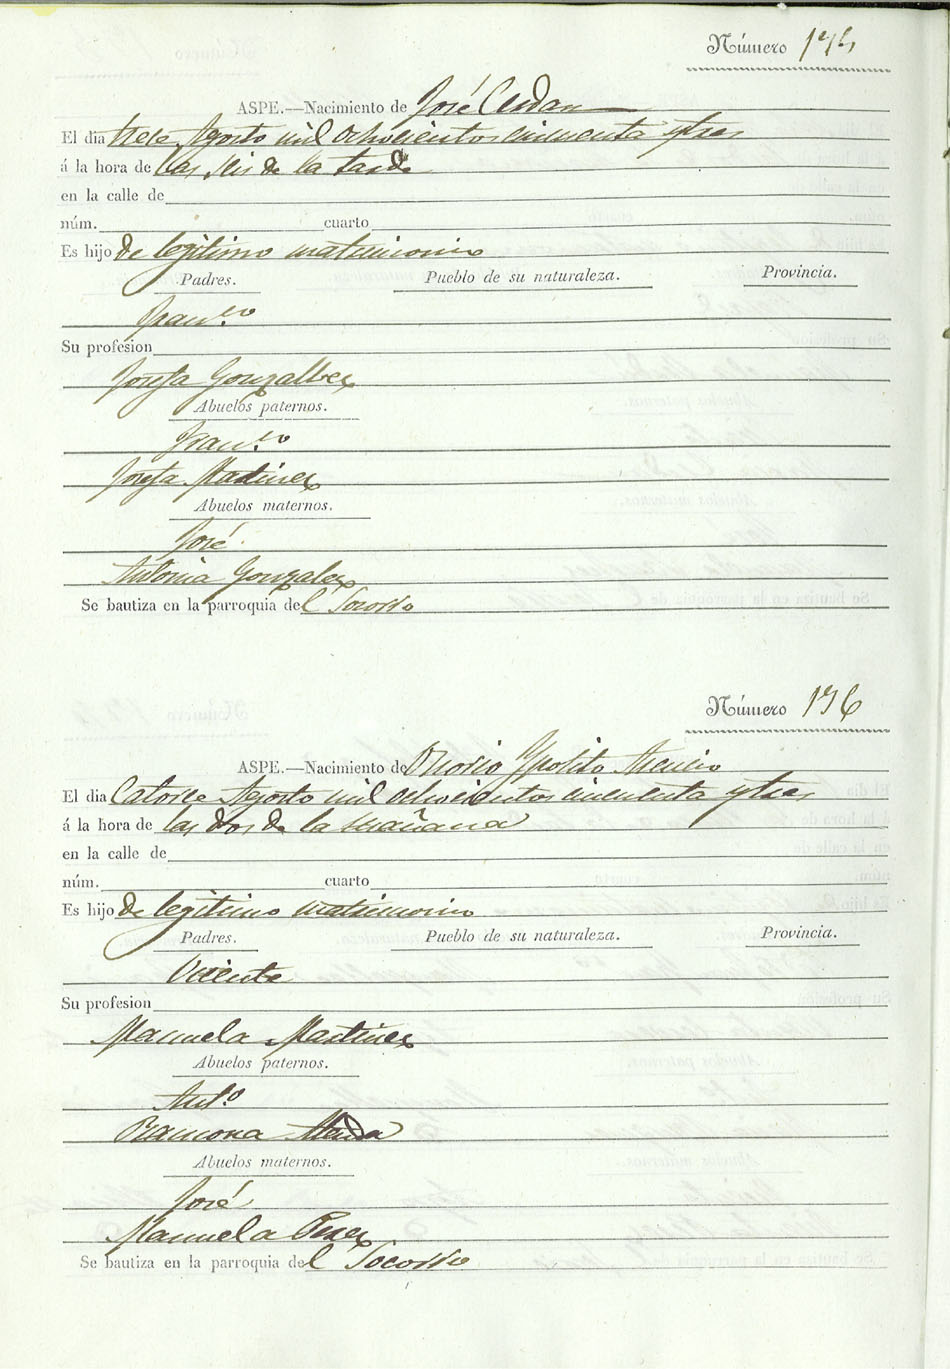 Número 175
ASPE.—Nacimiento de José Cerdan
El dia trece Agosto mil ochocientos cincuenta y tres
á la hora de las seis de la tarde
en la calle de
núm. cuarto
Es hijo de legitimo matrimonio
Padres. Pueblo de su naturaleza. Provincia.
Franco
Su profesion
Josefa Gonzalbez
Abuelos paternos.
Franco
Josefa Martinez
Abuelos maternos.
José
Antonia Gonzalez
Se bautiza en la parroquia del Socorro
Número 176
ASPE.—Nacimiento de Ypolito
El dia Catorce Agosto mil ochocientos cincuenta y tres
á la hora de las dos de la mañana
en la calle de
núm. cuarto
Es hijo de legitimo matrimonio
Padres. Pueblo de su naturaleza. Provincia.
Vicente
Su profesion
Manuela Martinez
Abuelos paternos.
Anto
Ramona
Abuelos maternos.
José
Manuela Perez
Se bautiza en la parroquia del Socorro